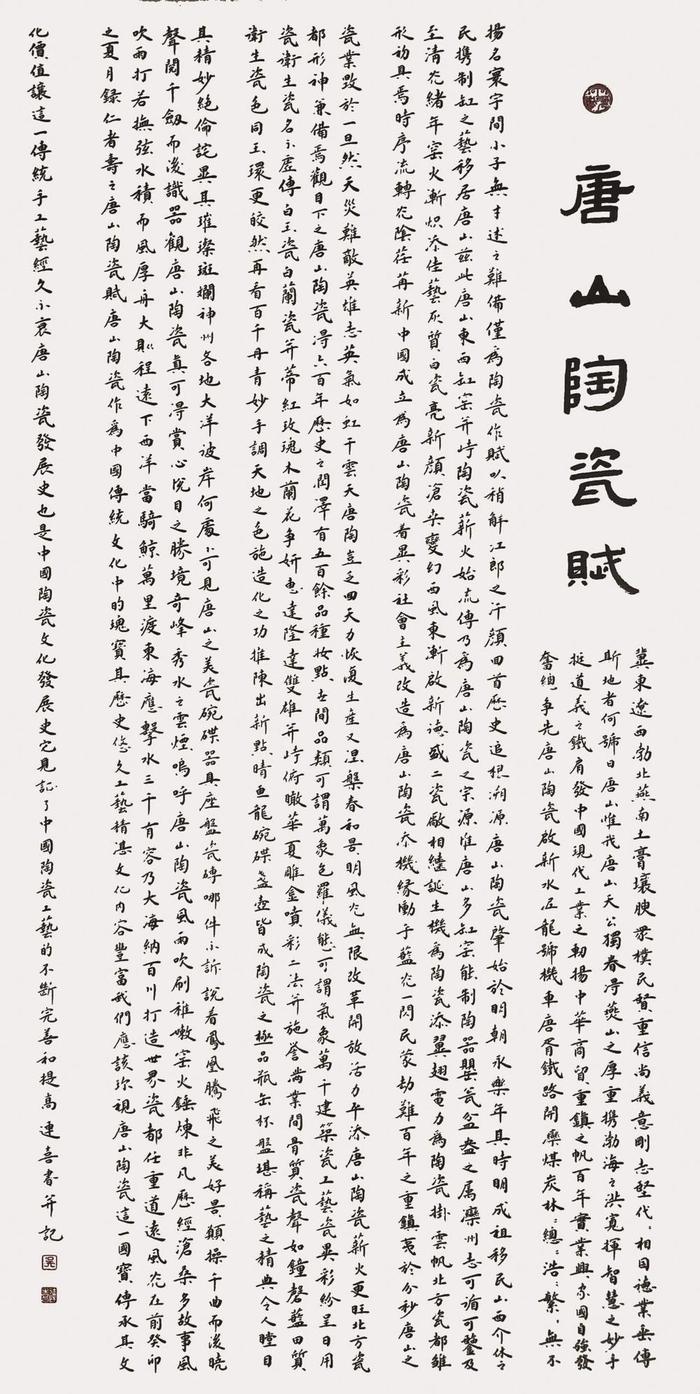 唐山陶瓷賦
冀東遼西渤北燕南土膏壤腴眾樸民賢重信尚義意剛志堅代代相因德業垂傳
斯地者何號曰唐山惟我唐山天公獨眷得燕山之厚重攜渤海之洪寬揮智慧之妙手
挺道義之鐵肩發中國現代工業之軔揚中華商貿重鎮之帆百年實業興家國自強發
奮總爭先唐山陶瓷啟新水泥龍號機車唐胥鐵路開灤煤炭林林總總浩浩繁繁無不
揚名寰宇間小子無才述之難備僅為陶瓷作賦以稍解江郎之汗顏回首歷史追根溯源唐山陶瓷肇始於明朝永樂年其時明成祖移民山西介休之
民攜制缸之藝移居唐山茲此唐山東西缸窯并峙陶瓷薪火始流傳乃為唐山陶瓷之宗源惟唐山多缸窯能制陶器甖瓮盆盎之属灤州志可循可鑒及
至清光緒年窯火漸熾添佳藝灰質白瓷亮新顏滄桑變幻西風東漸啟新德盛二瓷廠相繼誕生機為陶瓷添翼翅電力為陶瓷掛雲帆北方瓷都雛
形初具焉時序流轉光陰荏苒新中國成立為唐山陶瓷著異彩社會主義改造為唐山陶瓷添機緣慟乎藍光一閃民蒙劫難百年之重鎮夷於分秒唐山之
瓷業毀於一旦然天災難敵英雄志英氣如虹干雲天唐陶豈乏回天力恢復生產又涅槃春和景明風光無限改革開放活力平添唐山陶瓷薪火更旺北方瓷
都形神兼備焉觀目下之唐山陶瓷得六百年歷史之潤澤有五百餘品種妝點世間品類可謂萬象包羅儀態可謂氣象萬千建築瓷工藝瓷異彩紛呈日用
瓷衛生瓷名不虛傳白玉瓷白蘭瓷并蒂紅玫瑰木蘭花爭妍惠達隆達雙雄并峙俯瞰華夏雕金噴彩二法并施譽滿業間骨質瓷聲如鐘磬藍田質
衛生瓷色同玉環更皎然再看百千丹青妙手調天地之色施造化之功推陳出新點睛魚龍碗碟盞壺皆成陶瓷之極品瓶缶杯盤堪稱藝之精典令人瞠目
其精妙絕倫詫異其璀璨斑斕神州各地大洋彼岸何處不可見唐山之美瓷碗碟器具座盤瓷磚哪件不訴說看鳳凰騰飛之美好景顛操千曲而後曉
聲閱千劍而後識器觀唐山陶瓷真可得賞心悅目之勝境奇峰秀水之雲煙嗚呼唐山陶瓷風雨吹刷稚嫩窯火錘煉非凡歷經滄桑多故事風
吹雨打若撫弦水積而風厚舟大耻程遠下西洋當騎鯨萬里渡東海應擊水三千有容乃大海納百川打造世界瓷都任重道遠風光在前癸卯
之夏月錄仁者壽之唐山陶瓷賦唐山陶瓷作為中國傳統文化中的瑰寶其歷史悠久工藝精湛文化內容豐富我們應該珍視唐山陶瓷這一國寶傳承其文
化價值讓這一傳統手工藝經久不衰唐山陶瓷發展史也是中國陶瓷文化發展史它見証了中國陶瓷工藝的不斷完善和提高連喜書并記